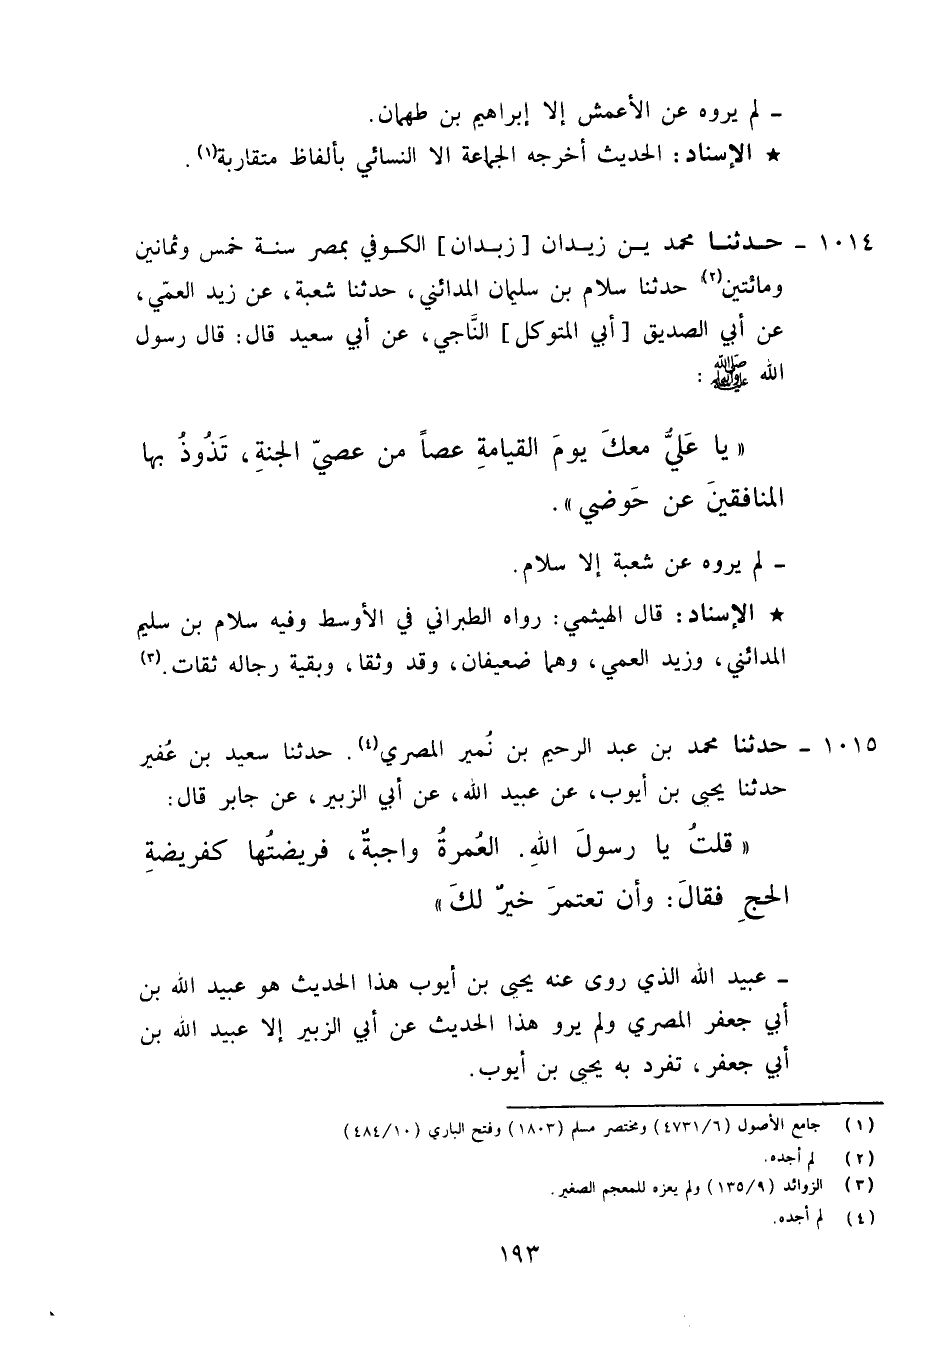 - لم يروه عن الأعمش إلا إبراهيم بن طهمان.
★ الإسناد: الحديث أخرجه الجماعة الا النسائي بألفاظ متقاربة(١).
١٠١٤ - حدثنا محمد بن زيدان [زبدان] الكوفي بمصر سنة خمس وثمانين
ومائتين(٢) حدثنا سلام بن سليمان المدائني، حدثنا شعبة، عن زيد العمّي،
عن أبي الصديق [أبي المتوكل] النَّاجي، عن أبي سعيد قال: قال رسول
الله ﷺ:
« يا عَليُّ معكَ يومَ القيامةِ عصاً من عصيّ الجنةِ، تَذُوذُ بها
المنافقينَ عن حَوضي».
- لم يروه عن شعبة إلا سلام.
★ الإسناد: قال الهيثمي: رواه الطبراني في الأوسط وفيه سلام بن سليم
المدائني، وزيد العمي، وهما ضعيفان، وقد وثقا، وبقية رجاله ثقات.(٣)
١٠١٥ - حدثنا محمد بن عبد الرحيم بن نُمير المصري(٤). حدثنا سعيد بن عُفير
حدثنا يحيى بن أيوب، عن عبيد الله، عن أبي الزبير، عن جابر قال:
« قلتُ يا رسولَ اللهِ. العُمرةُ واجبةٌ، فريضتُها كفريضةِ
الحجِ فقالَ: وأن تعتمرَ خيرٌ لكَ»
- عبيد الله الذي روى عنه يحيى بن أيوب هذا الحديث هو عبيد الله بن
أبي جعفر المصري ولم يرو هذا الحديث عن أبي الزبير إلا عبيد الله بن
أبي جعفر، تفرد به يحيى بن أيوب.
(١) جامع الأصول (٤٧٣١/٦) ومختصر مسلم (١٨٠٣) وفتح الباري (٤٨٤/١٠)
(٢) لم أجده.
(٣) الزوائد (١٣٥/٩) ولم يعزه للمعجم الصغير.
(٤) لم أجده.
١٩٣